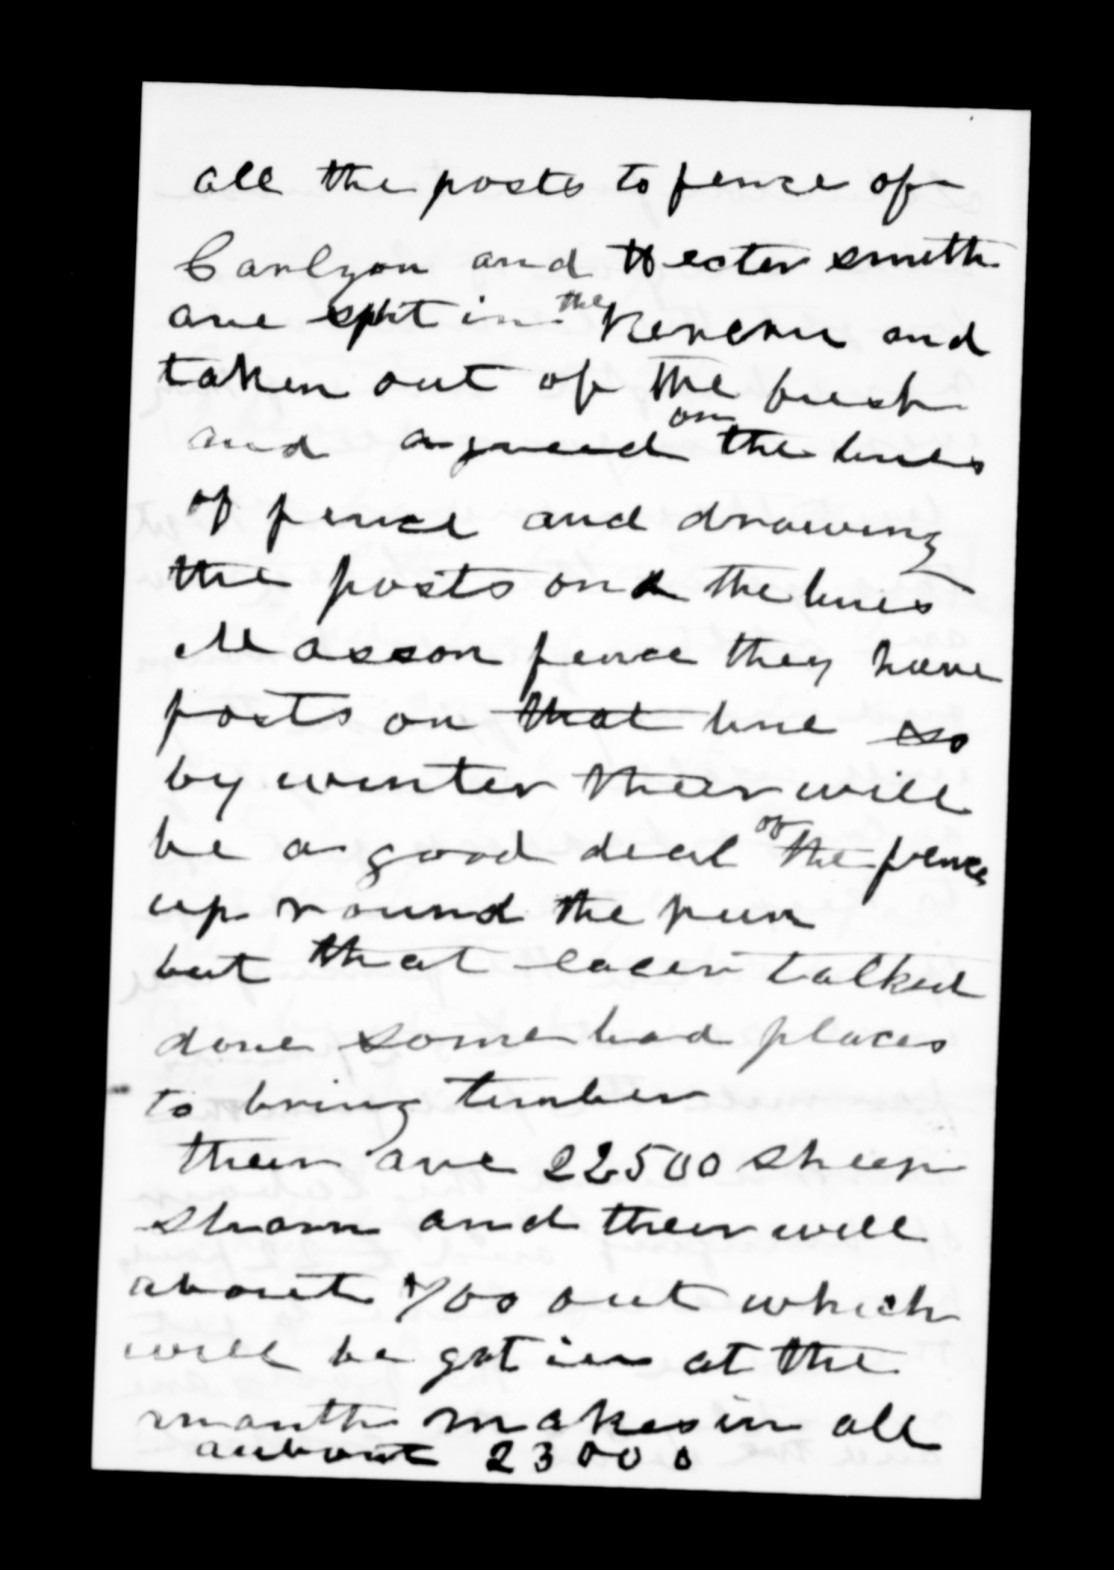 all the posts to fence of
Carlyon and Hector smith
are split in the Kereru and
taken out of the bush
and agreed on the lines
of fence and drawing
the posts on the lines
Masson fence they have
posts on that line so
by winter their will
be a good deal of the fence
up round the run
but that lacen talked
done some bad places
to bring timber
their are 22500 sheep
shorn and their will
about 700 out which
will be got in at the
month makes in all
aubout 23000